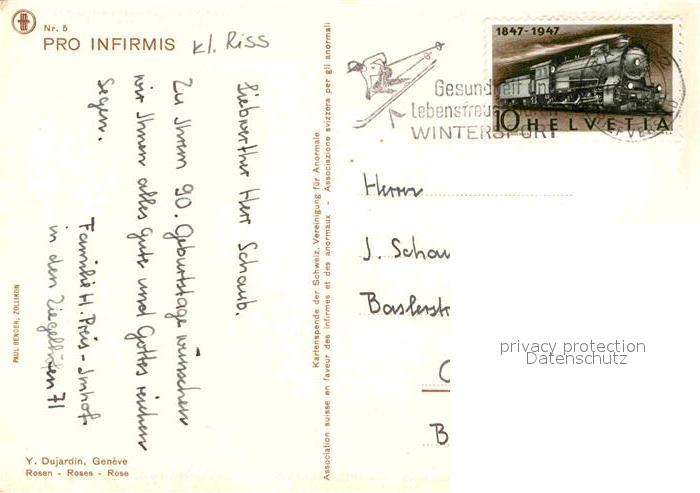 Nr. 5
PRO INFIRMIS
kl. Riss
Liebwerther Herr Schaub.
Zu Ihrem 90. Geburtstage wünschen
wir Ihnen alles gute und Gottes reichen
Segen.
Familie H. Preis-Imhof
in den Ziegelhöfen 71
PAUL BENDER, ZOLLIKON
Y. Dujardin, Genève
Rosen - Roses - Rose
Kartenspende der Schweiz. Vereinigung für Anormale
Association suisse en faveur des infirmes et des anormaux - Associazione svizzera per gli anormali
1847-1947
10 HELVETIA
Gesundheit
Lebensfreu
WINTERSPORT
Herrn
J. Schau
Baslerst
B
privacy protection
Datenschutz